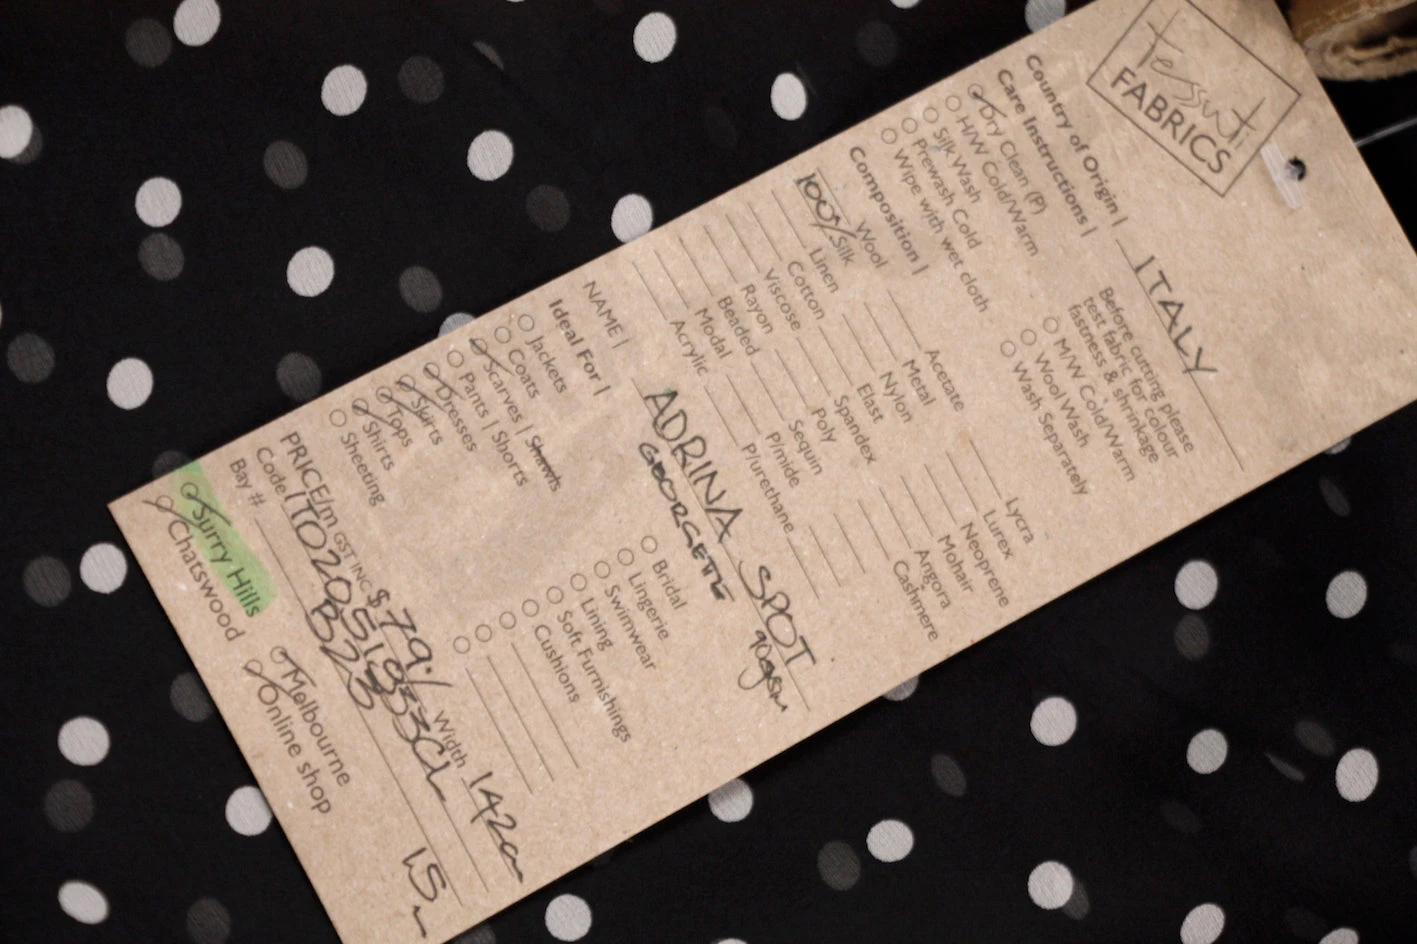 Tessuti
FABRICS
Country of Origin | ITALY
Care Instructions |
Dry Clean (P)
H/W Cold/Warm
Silk Wash
Prewash Cold
Wipe with wet cloth
Before cutting please
test fabric for colour
fastness & shrinkage
M/W Cold/Warm
Wool Wash
Wash Separately
Composition |
Wool
100% Silk
Linen
Cotton
Viscose
Rayon
Beaded
Modal
Acrylic
Acetate
Metal
Nylon
Elast
Spandex
Poly
Sequin
P/mide
P/urethane
Lycra
Lurex
Neoprene
Mohair
Angora
Cashmere
NAME | ADRINA SPOT
GEORGETTE 90gsm
Ideal For |
Jackets
Coats
Scarves | Shawls
Pants | Shorts
Dresses
Skirts
Tops
Shirts
Sheeting
Bridal
Lingerie
Swimwear
Lining
Soft Furnishings
Cushions
PRICE/m GST INC $79 Width 142cm
Code
Bay # B23
Surry Hills
Chatswood
Melbourne
Online shop